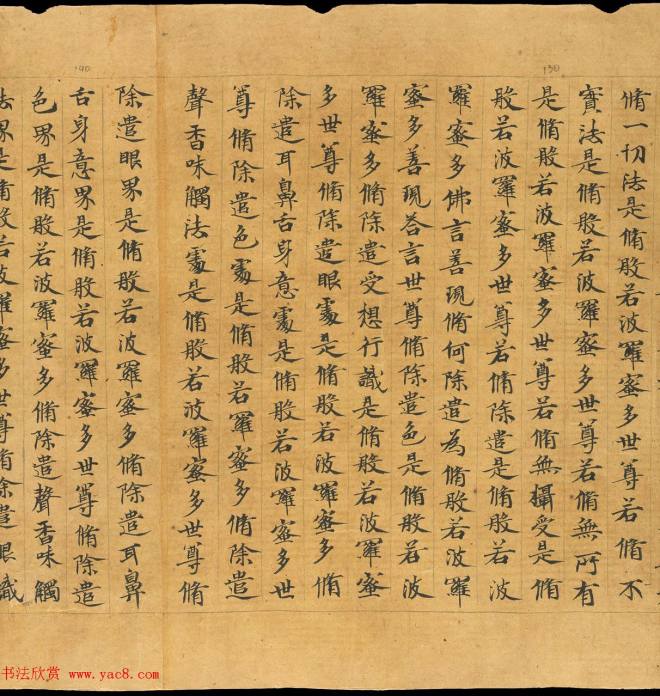 脩一切法是脩般若波羅蜜多世尊若脩不
實法是脩般若波羅蜜多世尊若脩無所有
是脩般若波羅蜜多世尊若脩無攝受是脩
般若波羅蜜多世尊若脩除遣是脩般若波
羅蜜多佛言善現脩何除遣為脩般若波羅
蜜多善現答言世尊脩除遣色是脩般若波
羅蜜多脩除遣受想行識是脩般若波羅蜜
多世尊脩除遣眼處是脩般若波羅蜜多脩
除遣耳鼻舌身意處是脩般若波羅蜜多世
尊脩除遣色處是脩般若羅蜜多脩除遣
聲香味觸法處是脩般若波羅蜜多世尊脩
除遣眼界是脩般若波羅蜜多脩除遣耳鼻
舌身意界是脩般若波羅蜜多世尊脩除遣
色界是脩般若波羅蜜多脩除遣聲香味觸
法界是脩般若波羅蜜多世尊脩除遣眼識
130
140
书法欣赏 www.yac8.com